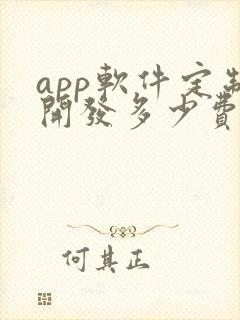 app軟件定制
開發多少費
何其正